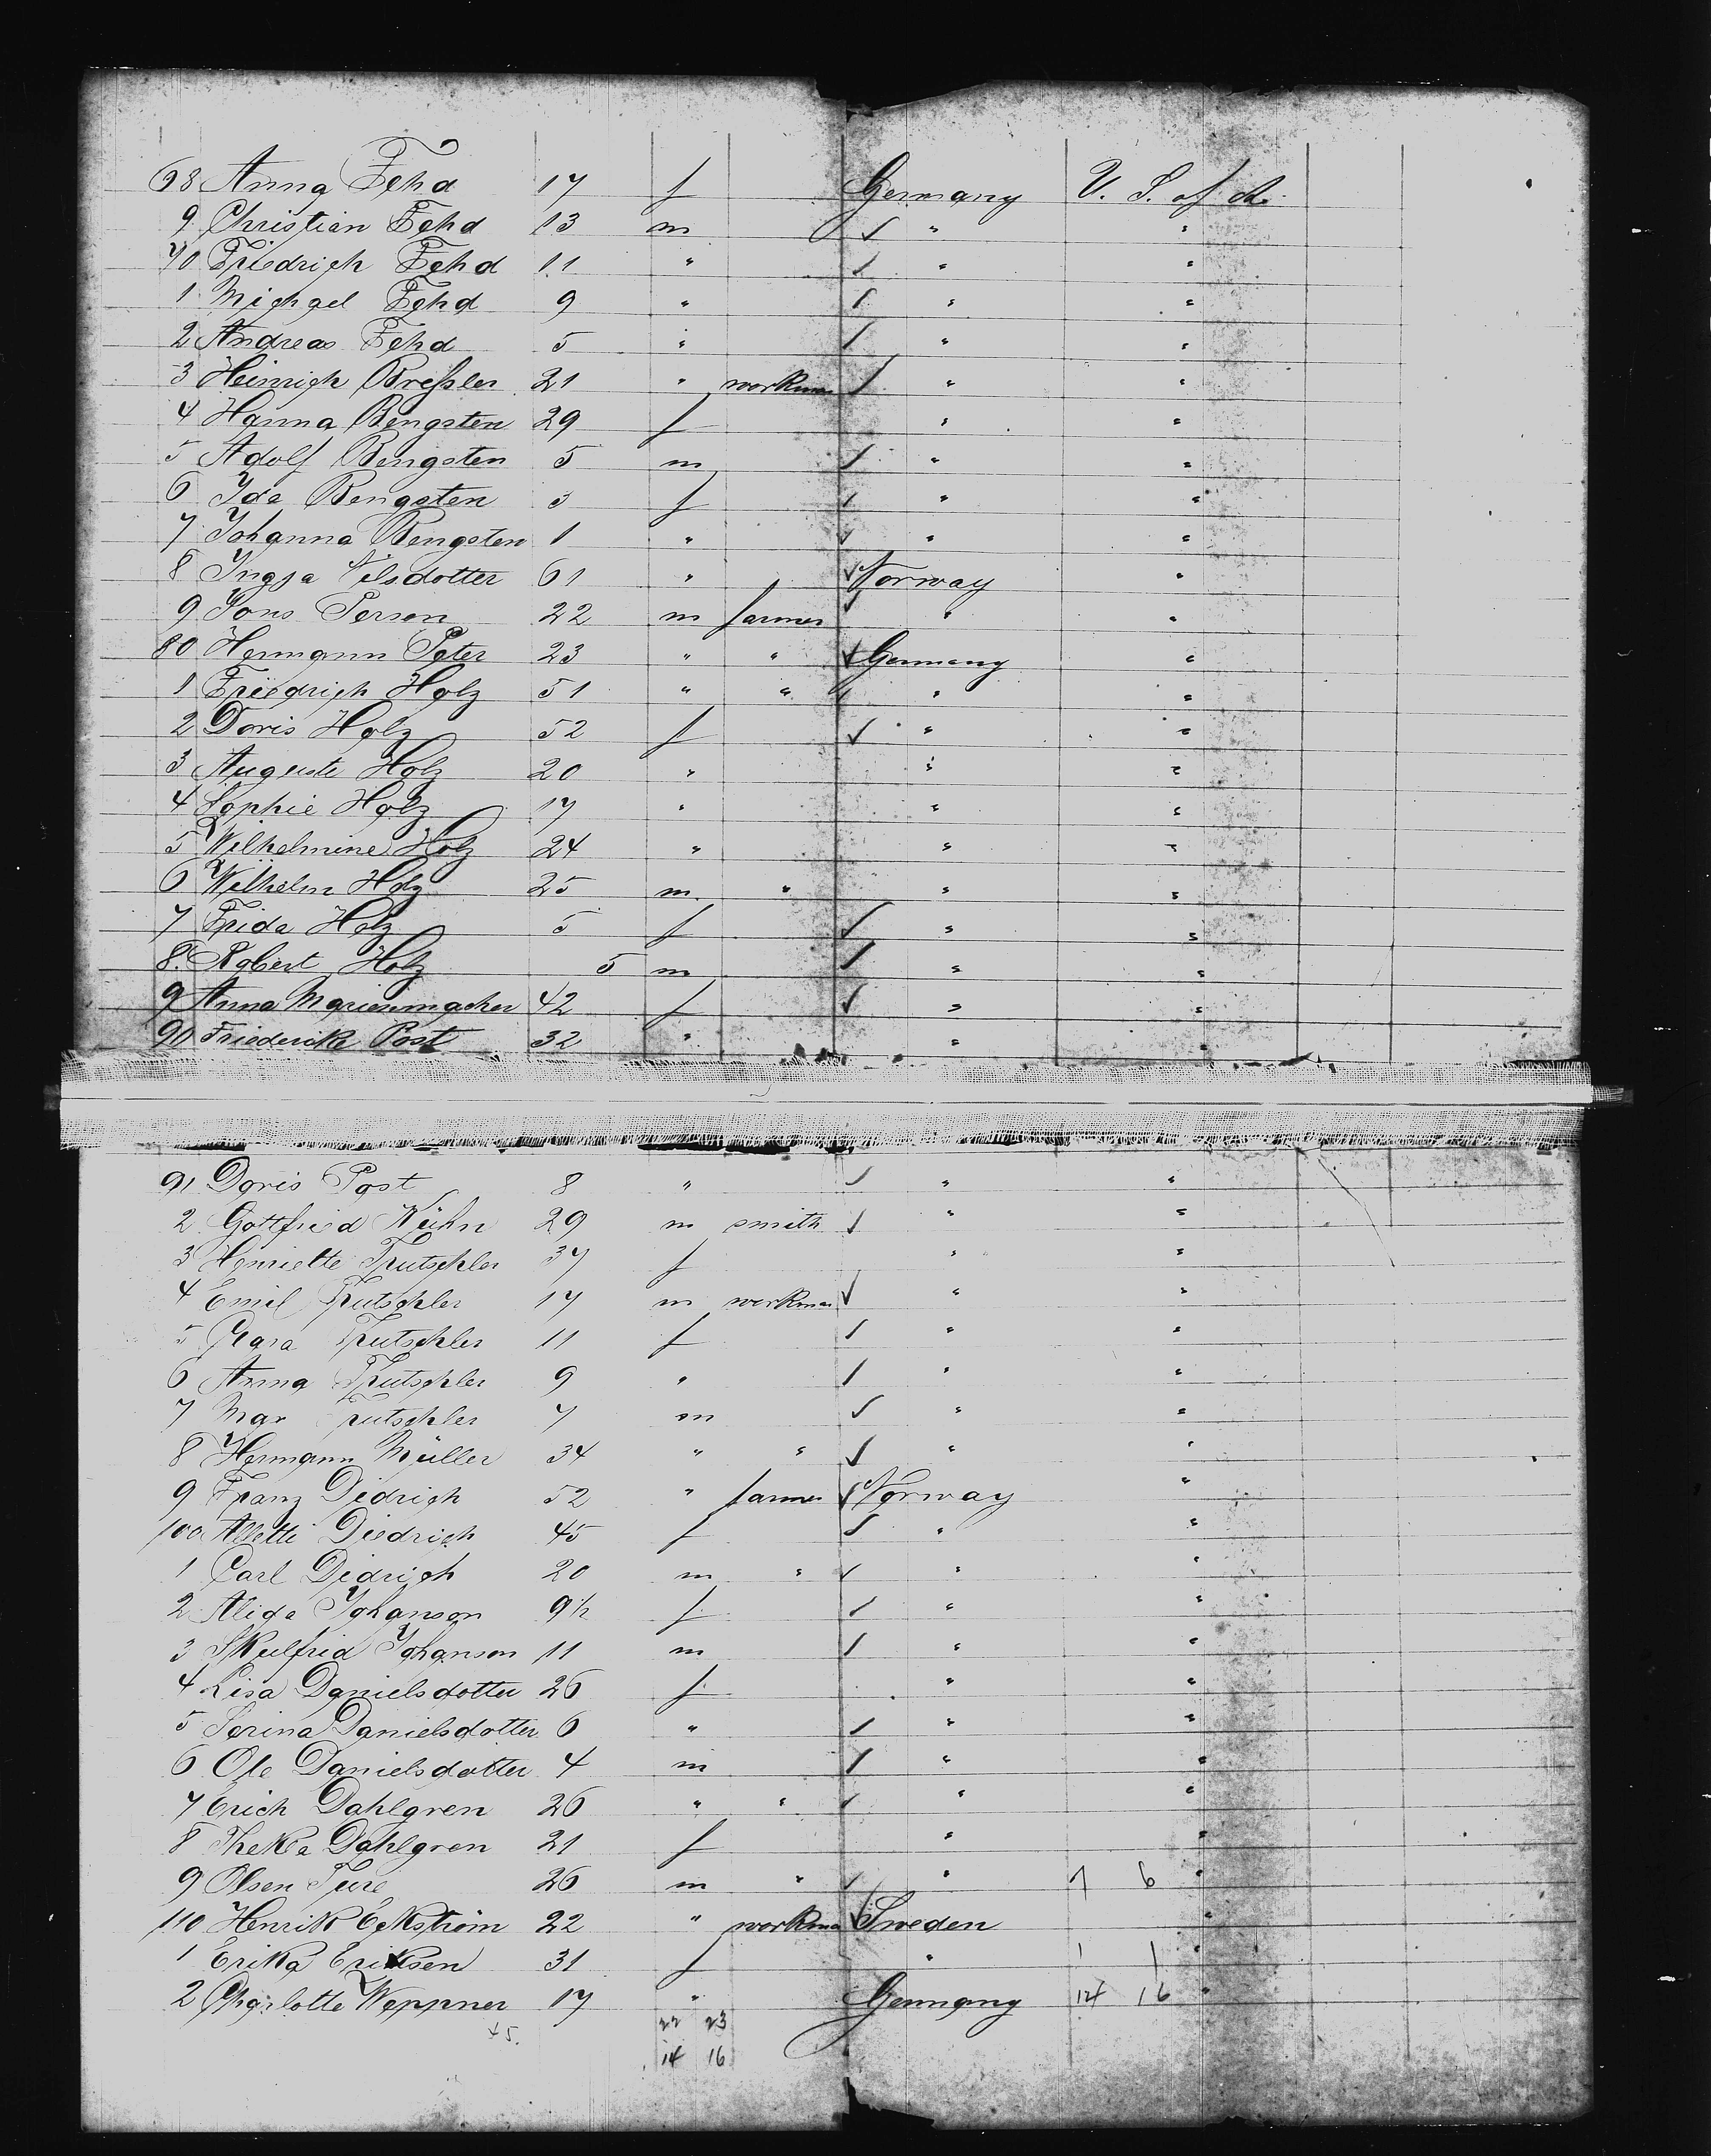 68 Anna Fehd 17 f Germany U. S. of A.
9 Christian Fehd 13 m ✓ " "
70 Friedrich Fehd 11 " ✓ " "
1 Michael Fehd 9 " ✓ " "
2 Andreas Fehd 5 " ✓ " "
3 Heinrich Breßler 21 " workman ✓ " "
4 Hanna Bengsten 29 f " "
5 Adolf Bengsten 5 m ✓ " "
6 Ida Bengsten 3 f ✓ " "
7 Johanna Bengsten 1 " ✓ " "
8 Ingja Nilsdotter 61 " ✓ Norway "
9 Jons Person 22 m farmer ✓ " "
80 Hermann Peter 23 " " ✓ Germany "
1 Friedrich Holz 51 " " ✓ " "
2 Doris Holz 52 f ✓ " "
3 Auguste Holz 20 " " "
4 Sophie Holz 17 " " "
5 Wilhelmine Holz 24 " " "
6 Wilhelm Holz 25 m " " "
7 Frida Holz 5 f ✓ " "
8. Robert Holz 5 m ✓ " "
9 Anna Marienmacher 42 f ✓ " "
90 Friederike Post 32 " " "
91 Doris Post 8 " ✓ " "
2 Gottfried Kühn 29 m smith ✓ " "
3 Henriette Trutschler 37 f " "
4 Emil Trutschler 17 m workman ✓ " "
5 Clara Trutschler 11 f ✓ " "
6 Anna Trutschler 9 " ✓ " "
7 Max Trutschler 7 m ✓ " "
8 Hermann Müller 34 " " ✓ " "
9 Franz Didrich 52 " farmer ✓ Norway "
100 Allette Diedrich 45 f ✓ " "
1 Carl Didrich 20 m " ✓ " "
2 Alida Johanson 9½ f ✓ " "
3 Skulfrid Johanson 11 m ✓ " "
4 Lisa Danielsdotter 26 f " "
5 Serina Danielsdotter 6 " ✓ " "
6 Ole Danielsdotter 4 m ✓ " "
7 Erich Dahlgren 26 " " ✓ " "
8 Thekla Dahlgren 21 f " "
9 Olsen Ture 26 m " ✓ " 7 6 "
110 Henrik Eckström 22 " workman ✓ Sweden "
1 Erika Eriksen 31 f " 1 1 "
2 Charlotte Weppner 17 " Germany 14 16 "
45. 22 23
14 16